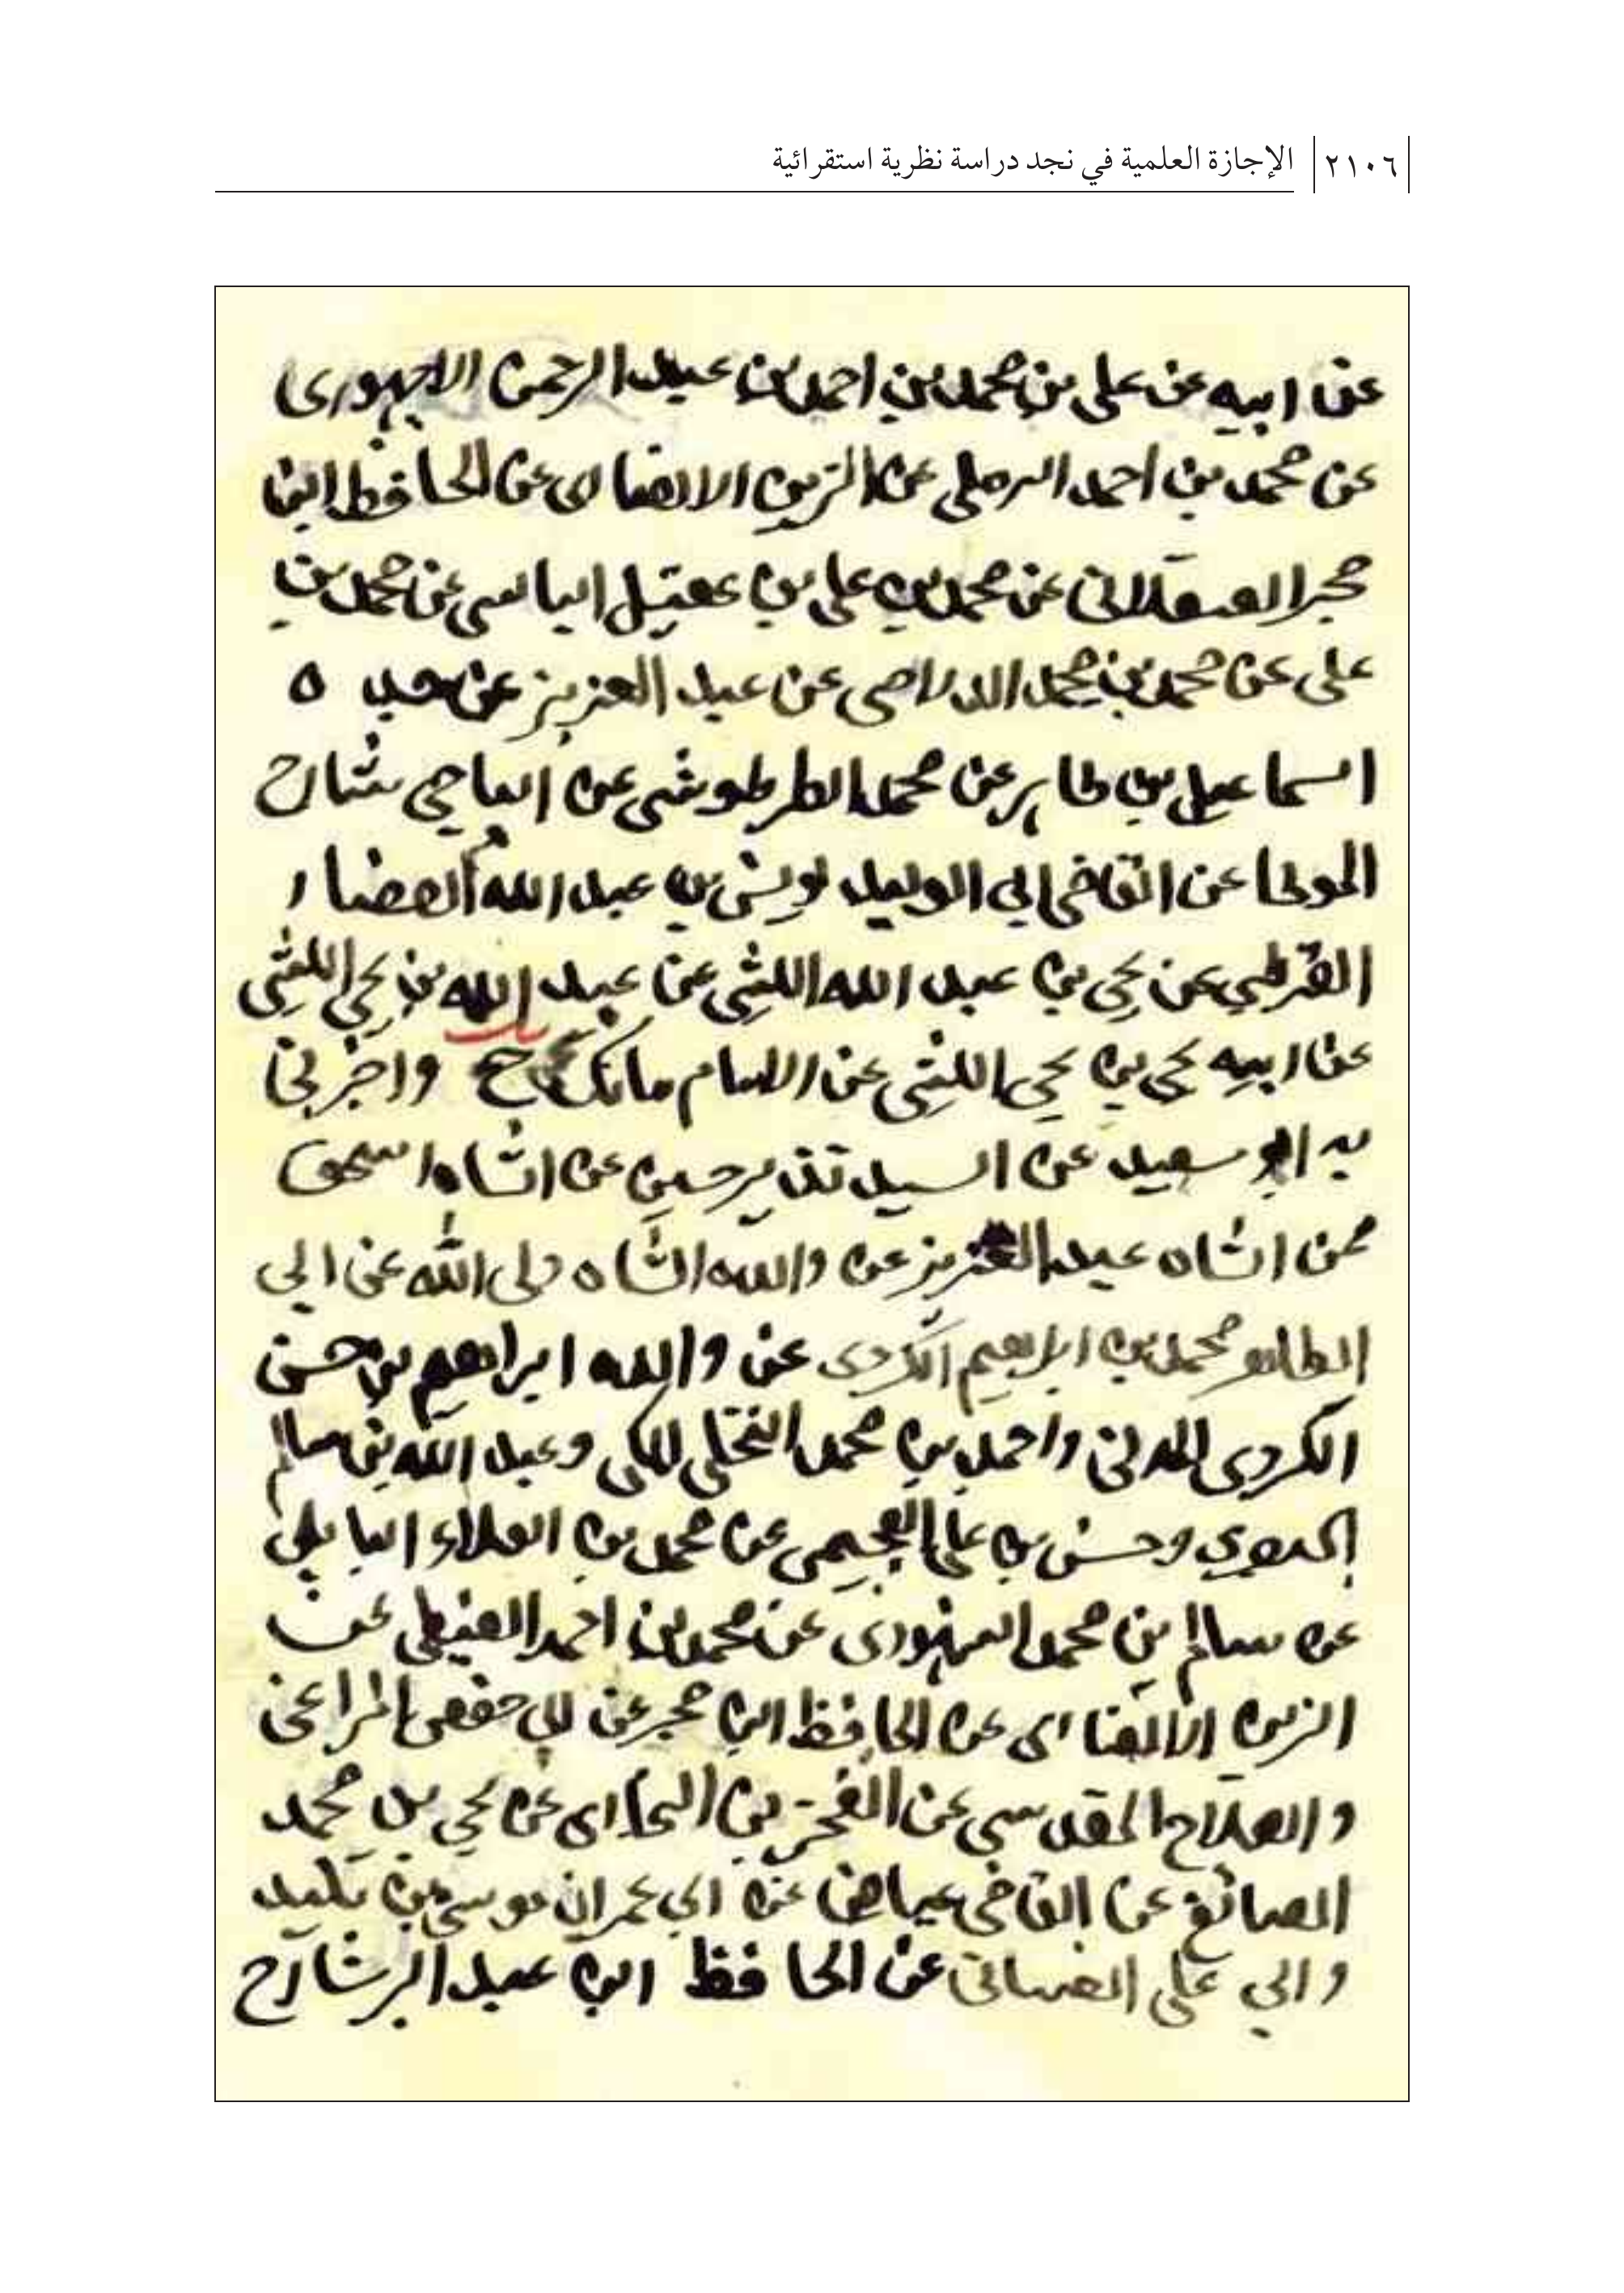 ٢١٠٦ الإجازة العلمية في نجد دراسة نظرية استقرائية
عن ابيه عن علي بن محمد بن احمد بن عبد الرحمن الاجهوري
عن محمد بن احمد الرملي عن الزين الانصاري عن الحافظ ابن
حجر العسقلاني عن محمد بن علي بن عقيل البالسي عن محمد بن
علي عن محمد بن محمد الدلاصي عن عبد العزيز عن جده
اسماعيل بن طاهر عن محمد الطرطوشي عن الباجي شارح
الموطا عن القاضي ابي الوليد يونس بن عبد الله الصفار
القرطبي عن يحي بن عبد الله الليثي عن عبيد الله بن يحي الليثي
عن ابيه يحي بن يحي الليثي عن الامام مالك ح واخبرني
به ابو سعيد عن السيد نذير حسين عن الشاه اسحق
عن الشاه عبد العزيز عن والده الشاه ولي الله عن ابي
الطاهر محمد بن ابراهيم الكردي عن والده ابراهيم بن حسن
الكردي المدني واحمد بن محمد النخلي المكي وعبد الله بن سالم
البصري وحسن بن علي العجيمي عن محمد بن العلاء البابلي
عن سالم بن محمد السنهوري عن محمد بن احمد الغيطي عن
الزين الانصاري عن الحافظ ابن حجر عن ابي حفص المراغي
والصلاح المقدسي عن الفخر بن البخاري عن يحي بن محمد
الصائغ عن القاضي عياض عن ابي عمران موسى بن تليد
وابي علي الغساني عن الحافظ ابن عبد البر شارح